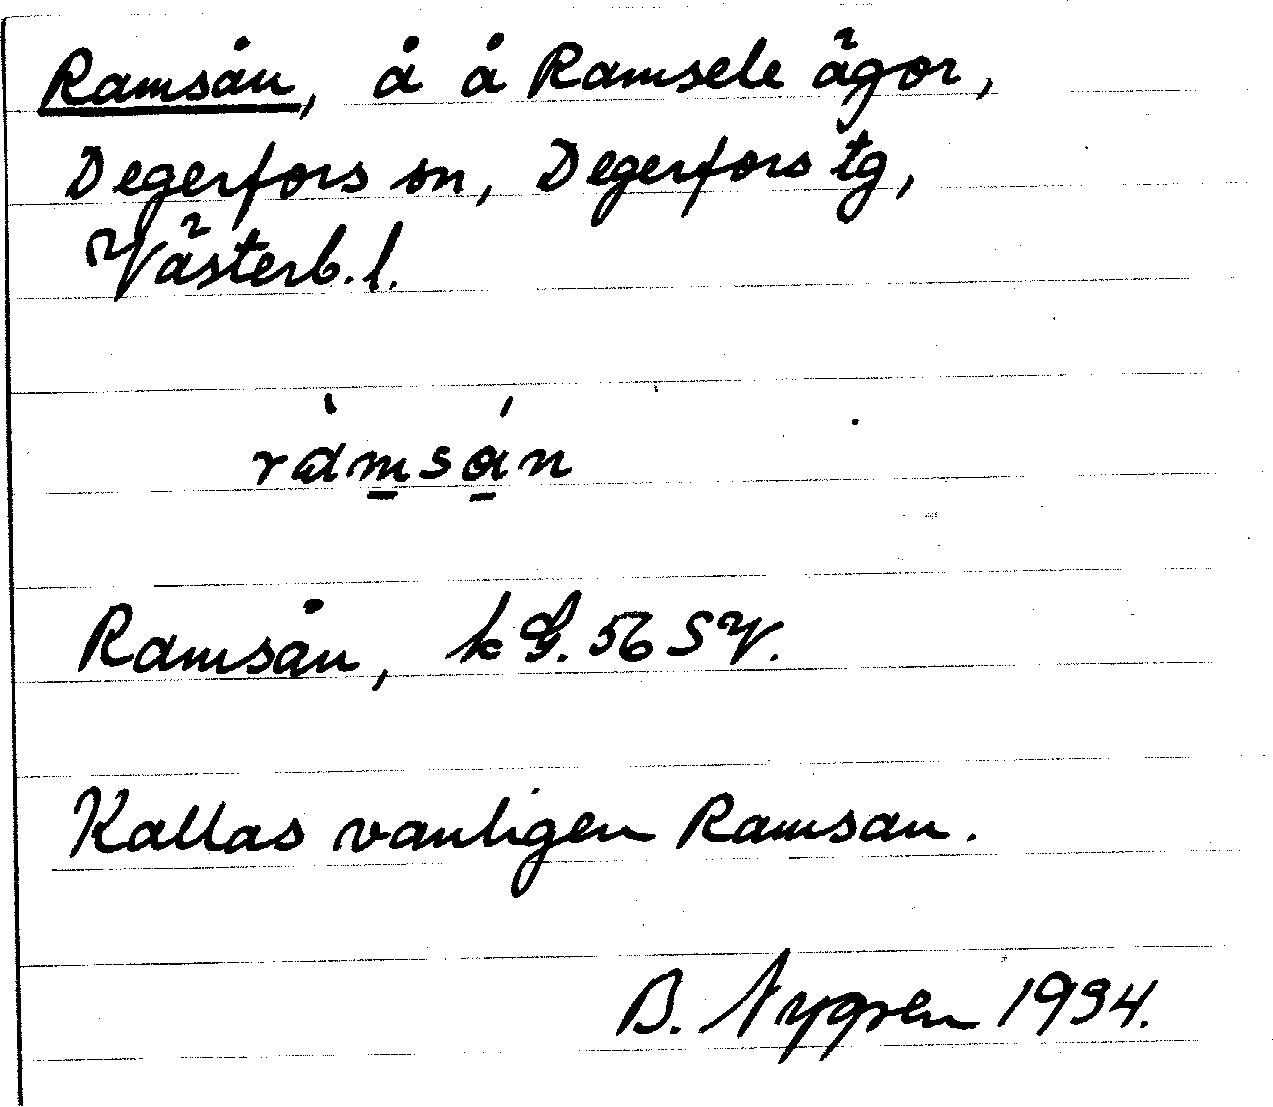 Ramsån, å å Ramsele ägor,
Degerfors sn, Degerfors tg,
Västerb. l.
ràmsán
Ramsån, kG. 56 SV.
Kallas vanligen Ramsan.
B. Nygren 1934.